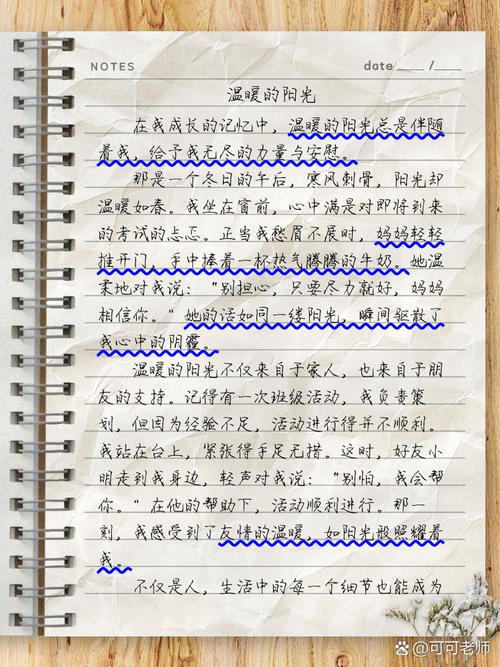 NOTES
date ___ / ___
温暖的阳光
在我成长的记忆中，温暖的阳光总是伴随
着我，给予我无尽的力量与安慰。
那是一个冬日的午后，寒风刺骨，阳光却
温暖如春。我坐在窗前，心中满是对即将到来
的考试的忐忑。正当我愁眉不展时，妈妈轻轻
推开门，手中捧着一杯热气腾腾的牛奶。她温
柔地对我说：“别担心，只要尽力就好，妈妈
相信你。”她的话如同一缕阳光，瞬间驱散了
我心中的阴霾。
温暖的阳光不仅来自于家人，也来自于朋
友的支持。记得有一次班级活动，我负责策
划，但因为经验不足，活动进行得并不顺利。
我站在台上，紧张得手足无措。这时，好友小
明走到我身边，轻声对我说：“别怕，我会帮
你。”在他的帮助下，活动顺利进行。那一
刻，我感受到了友情的温暖，如阳光般照耀着
我。
不仅是人，生活中的每一个细节也能成为
@可可老师